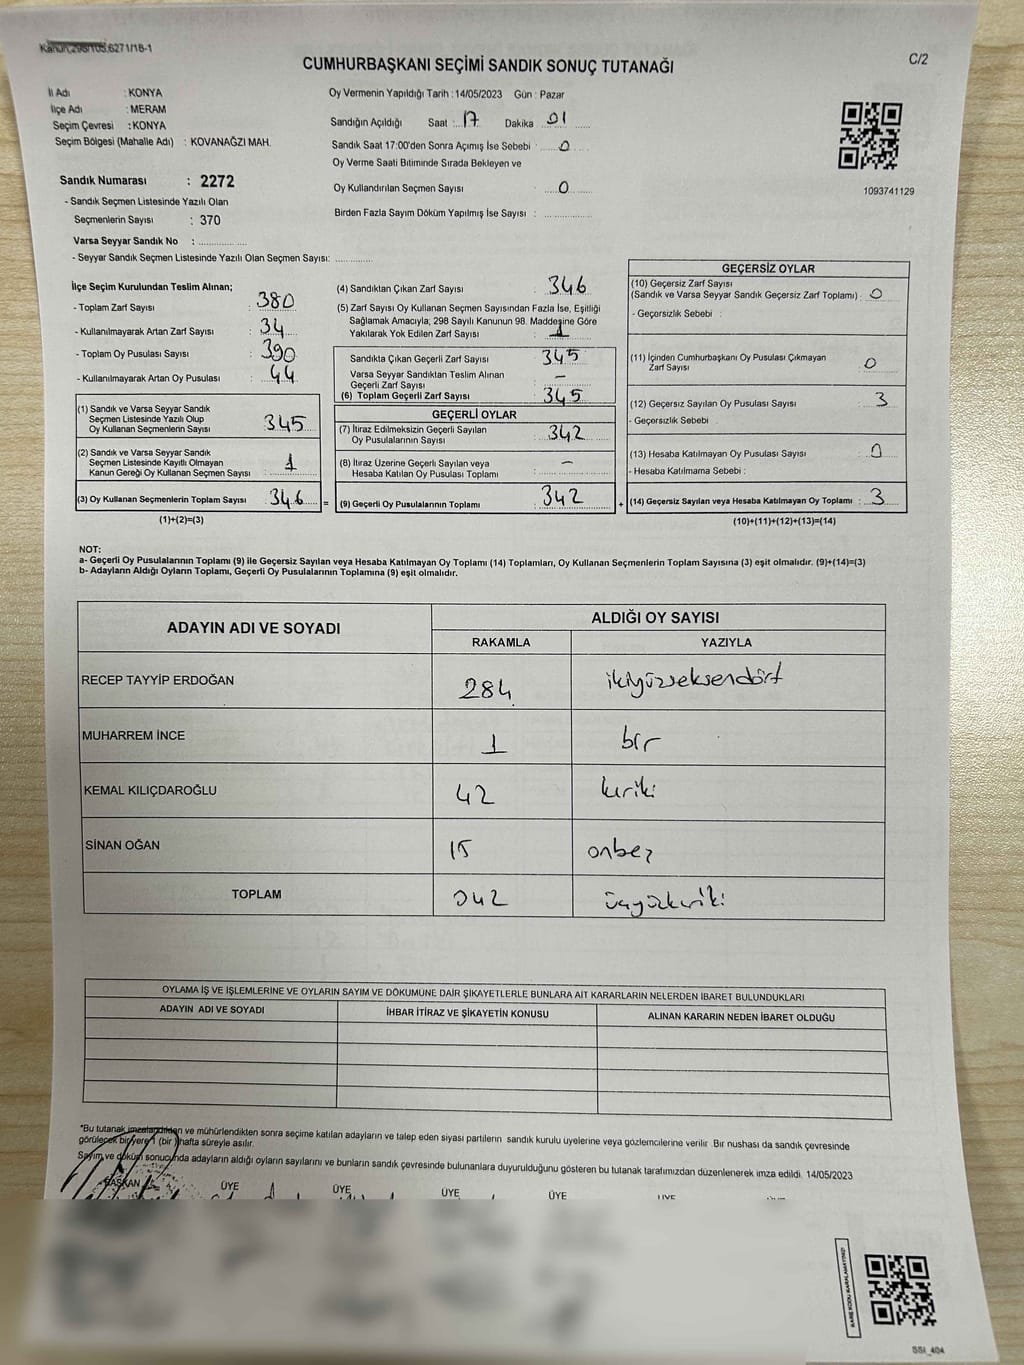 Kanun,298/105,6271/1B-1
C/2
CUMHURBAŞKANI SEÇİMİ SANDIK SONUÇ TUTANAĞI
İl Adı : KONYA
İlçe Adı : MERAM
Seçim Çevresi : KONYA
Seçim Bölgesi (Mahalle Adı) : KOVANAĞZI MAH.
Sandık Numarası : 2272
- Sandık Seçmen Listesinde Yazılı Olan
Seçmenlerin Sayısı : 370
Varsa Seyyar Sandık No : ..................
- Seyyar Sandık Seçmen Listesinde Yazılı Olan Seçmen Sayısı: .............
Oy Vermenin Yapıldığı Tarih : 14/05/2023 Gün : Pazar
Sandığın Açıldığı Saat : 17 Dakika 01
Sandık Saat 17:00'den Sonra Açımış İse Sebebi : 0
Oy Verme Saati Bitiminde Sırada Bekleyen ve
Oy Kullandırılan Seçmen Sayısı : 0
Birden Fazla Sayım Döküm Yapılmış İse Sayısı : ................
1093741129
İlçe Seçim Kurulundan Teslim Alınan;
- Toplam Zarf Sayısı : 380
- Kullanılmayarak Artan Zarf Sayısı : 34
- Toplam Oy Pusulası Sayısı : 390
- Kullanılmayarak Artan Oy Pusulası : 44
(1) Sandık ve Varsa Seyyar Sandık
Seçmen Listesinde Yazılı Olup
Oy Kullanan Seçmenlerin Sayısı : 345
(2) Sandık ve Varsa Seyyar Sandık
Seçmen Listesinde Kayıtlı Olmayan
Kanun Gereği Oy Kullanan Seçmen Sayısı : 1
(3) Oy Kullanan Seçmenlerin Toplam Sayısı : 346 =
(1)+(2)=(3)
(4) Sandıktan Çıkan Zarf Sayısı : 346
(5) Zarf Sayısı Oy Kullanan Seçmen Sayısından Fazla İse, Eşitliği
Sağlamak Amacıyla; 298 Sayılı Kanunun 98. Maddesine Göre
Yakılarak Yok Edilen Zarf Sayısı : 1
Sandıkta Çıkan Geçerli Zarf Sayısı : 345
Varsa Seyyar Sandıktan Teslim Alınan
Geçerli Zarf Sayısı : –
(6) Toplam Geçerli Zarf Sayısı : 345
GEÇERLİ OYLAR
(7) İtiraz Edilmeksizin Geçerli Sayılan
Oy Pusulalarının Sayısı : 342
(8) İtiraz Üzerine Geçerli Sayılan veya
Hesaba Katılan Oy Pusulası Toplamı : –
(9) Geçerli Oy Pusulalarının Toplamı : 342 +
GEÇERSİZ OYLAR
(10) Geçersiz Zarf Sayısı
(Sandık ve Varsa Seyyar Sandık Geçersiz Zarf Toplamı) : 0
- Geçersizlik Sebebi :
(11) İçinden Cumhurbaşkanı Oy Pusulası Çıkmayan
Zarf Sayısı : 0
(12) Geçersiz Sayılan Oy Pusulası Sayısı : 3
- Geçersizlik Sebebi :
(13) Hesaba Katılmayan Oy Pusulası Sayısı : 0
- Hesaba Katılmama Sebebi :
(14) Geçersiz Sayılan veya Hesaba Katılmayan Oy Toplamı : 3
(10)+(11)+(12)+(13)=(14)
NOT:
a- Geçerli Oy Pusulalarının Toplamı (9) ile Geçersiz Sayılan veya Hesaba Katılmayan Oy Toplamı (14) Toplamları, Oy Kullanan Seçmenlerin Toplam Sayısına (3) eşit olmalıdır. (9)+(14)=(3)
b- Adayların Aldığı Oyların Toplamı, Geçerli Oy Pusulalarının Toplamına (9) eşit olmalıdır.
ADAYIN ADI VE SOYADI ALDIĞI OY SAYISI
RAKAMLA YAZIYLA
RECEP TAYYİP ERDOĞAN 284 ikiyüzseksendört
MUHARREM İNCE 1 bir
KEMAL KILIÇDAROĞLU 42 kırkiki
SİNAN OĞAN 15 onbeş
TOPLAM 342 üçyüzkırkiki
OYLAMA İŞ VE İŞLEMLERİNE VE OYLARIN SAYIM VE DÖKÜMÜNE DAİR ŞİKAYETLERLE BUNLARA AİT KARARLARIN NELERDEN İBARET BULUNDUKLARI
ADAYIN ADI VE SOYADI İHBAR İTİRAZ VE ŞİKAYETİN KONUSU ALINAN KARARIN NEDEN İBARET OLDUĞU
*Bu tutanak imzalandıktan ve mühürlendikten sonra seçime katılan adayların ve talep eden siyasi partilerin sandık kurulu üyelerine veya gözlemcilerine verilir .Bir nushası da sandık çevresinde
görülecek bir yere 1 (bir )hafta süreyle asılır.
Sayım ve döküm sonucunda adayların aldığı oyların sayılarını ve bunların sandık çevresinde bulunanlara duyurulduğunu gösteren bu tutanak tarafımızdan düzenlenerek imza edildi. 14/05/2023
BAŞKAN ÜYE ÜYE ÜYE ÜYE ÜYE
KARE KODU KARALAMAYINIZ!
SSİ_404